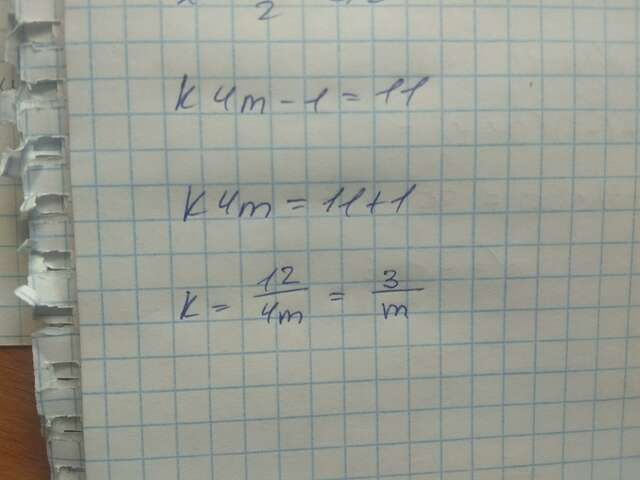 2
K 4m - 1 = 11
K 4m = 11 + 1
K = 12/4m = 3/m